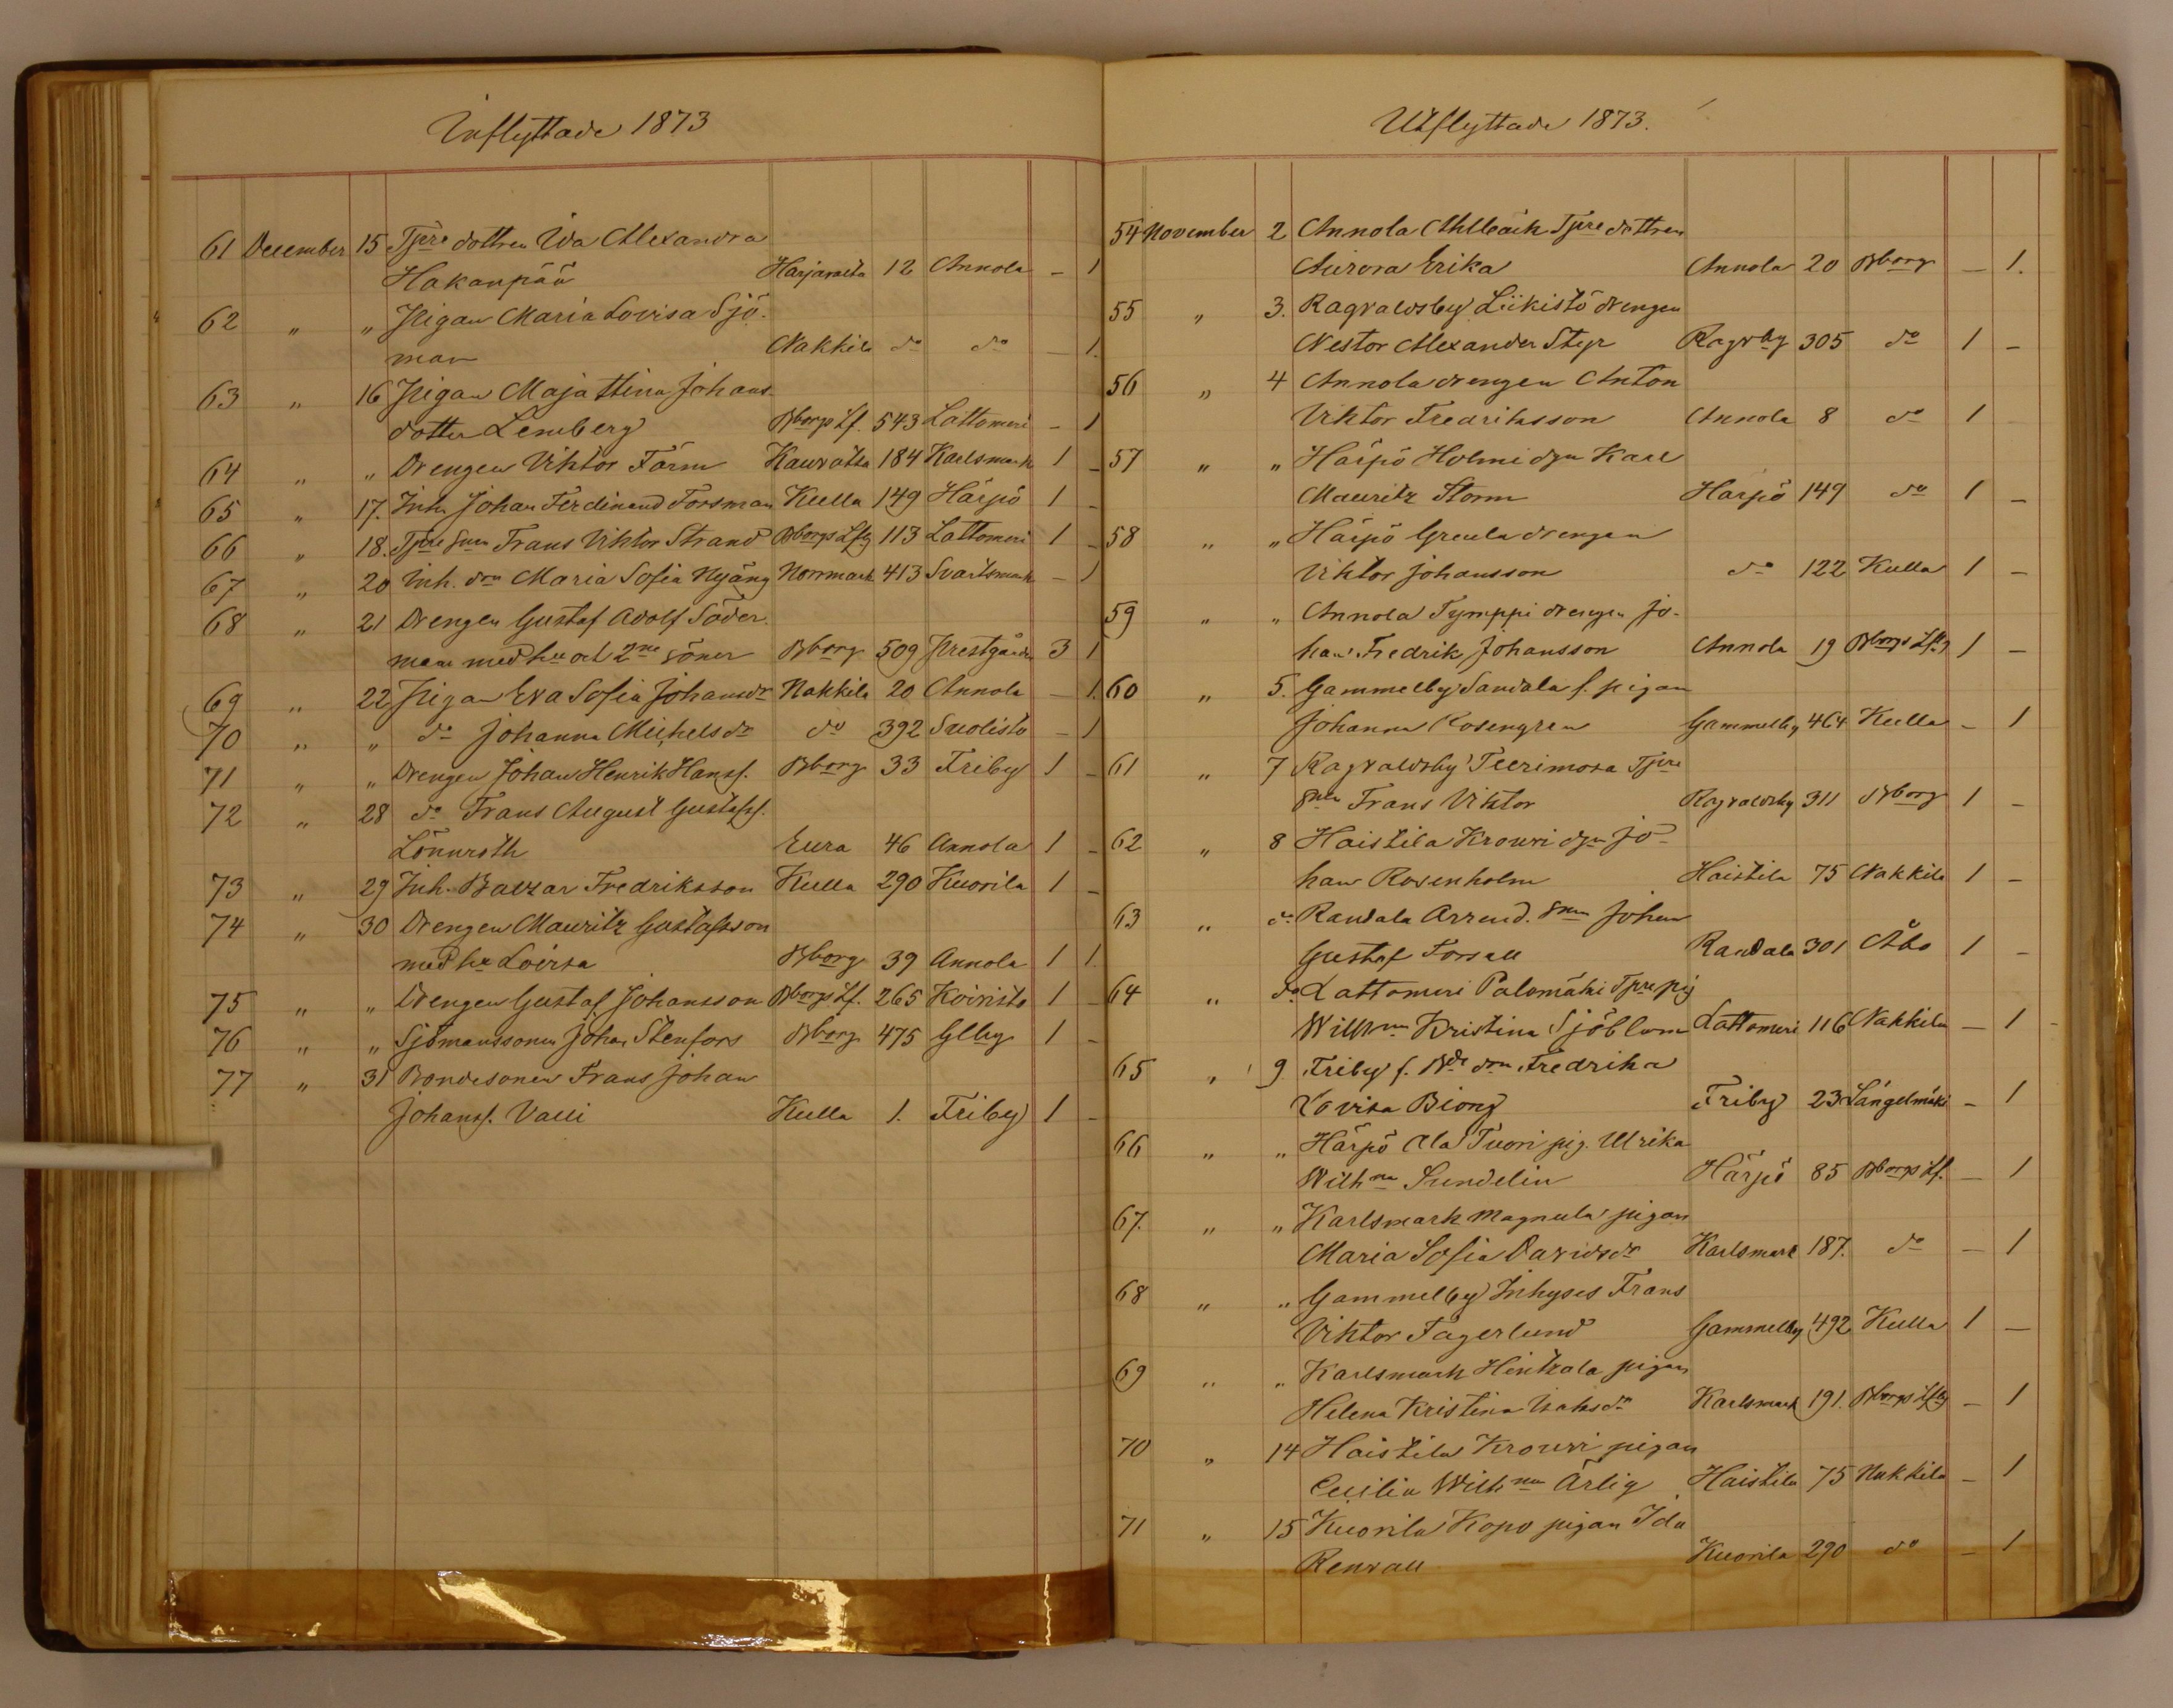 Inflyttade 1873
61 December 15 Tjere dottren Ida Alexandra
Hakanpää Harjavalta 12 Annola – 1
62 " " Pigan Maria Lovisa Sjö-
man Nakkila do do – 1.
63 " 16 Pigan Maja Stina Johans-
dotter Lemberg Bborgs Lf. 543 Lattomeri – 1
64 " " Drengen Viktor Färm Kauvatsa 184 Karlsmark 1 –
65 " 17. Inh. Johan Ferdinand Forsman Kulla 149 Härpö 1 –
66 " 18. Tjere snen Frans Viktor Strand Bborgs Lfg 113 Lattomeri 1 –
67 " 20 Inh. drn Maria Sofia Nyäng Norrmark 413 Svartsmark – 1
68 " 21 Drengen Gustaf Adolf Söder-
man med hu och 2ne söner Bborg 509 Prestgården 3 1
69 " 22 Pigan Eva Sofia Johansdr Nakkila 20 Annola – 1.
70 " " do Johanna Michelsdr do 392 Suolisto – 1
71 " " Drengen Johan Henrik Hanss. Bborg 33 Friby 1 –
72 " 28 do Frans August Gustafss.
Lönnroth Eura 46 Annola 1 –
73 " 29 Inh. Balzar Fredriksson Kulla 290 Kuorila 1 –
74 " 30 Drengen Mauritz Gustafsson
med hu Lovisa Bborg 39 Annola 1 1.
75 " " Drengen Gustaf Johansson Bborgs Lf. 265 Koivisto 1 –
76 " " Sjömanssonen Johan Stenfors Bborg 475 Glby 1 –
77 " 31 Bondesonen Frans Johan
Johanss. Valli Kulla 1. Friby 1 –
Utflyttade 1873.
54 November 2 Annola Ahlbäck Tjere dottren
Aurora Erika Annola 20 Bborg – 1.
55 " 3. Ragvaldsby Liikistö drengen
Nestor Alexander Styr Ragvby 305 do 1 –
56 " 4 Annola drengen Anton
Viktor Fredriksson Annola 8 do 1
57 " " Härpö Holmi dgn Karl
Mauritz Storm Harpö 149 do 1 –
58 " " Härpö Greula drengen
Viktor Johansson do 122 Kulla 1 –
59 " " Annola Tymppi drengen Jo-
han Fredrik Johansson Annola 19 Bborgs Lfg 1 –
60 " 5. Gammelby Sandala f. pigan
Johanna Rosengren Gammelby 464 Kulla – 1
61 " 7 Ragvaldsby Teerimosa Tjere
snen Frans Viktor Ragvaldsby 311 Bborg 1 –
62 " 8 Haistila Krouvi dgn Jo-
han Rosenholm Haistila 75 Nakkila 1 –
63 " do Randala Arrend. snen Johan
Gustaf Forsell Randala 301 Åbo 1 –
64 " do Lattomeri Palomäki Tjre pig
Wilhna Kristina Sjöblom Lattomeri 116 Nakkila – 1
65 " 9 Friby f. Bde drn Fredrika
Lovisa Biong Friby 23 Längelmäki – 1
66 " " Härpö Ala Tuori pig. Ulrika
Wilhna Sundelin Härpö 85 Bborgs Lf. – 1
67. " " Karlsmark Magnula pigan
Maria Sofia Davidsdr Karlsmark 187. do – 1
68 " " Gammelby Inhyses Frans
Viktor Fagerlund Gammelby 492 Kulla 1 –
69 " " Karlsmark Hintzala pigan
Helena Kristina Isaksdr Karlsmark 191. Bborgs Lfg – 1
70 " 14 Haistila Krouvi pigan
Cecilia Wilhna Ärlig Haistila 75 Nakkila – 1
71 " 15 Kuorila Kopo pigan Ida
Renvall Kuorila 290 do – 1